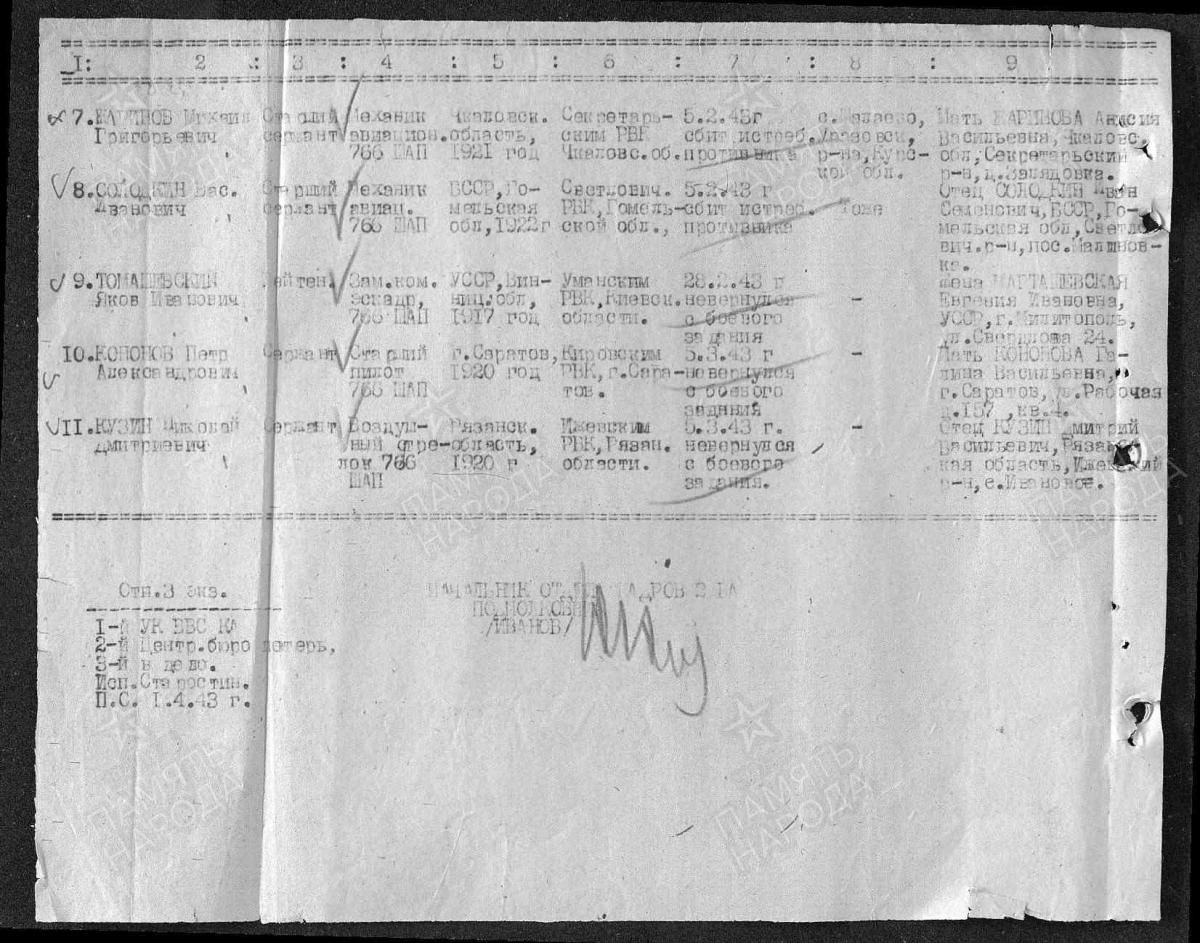 I: 2 : 3 : 4 : 5 : 6 : 7 : 8 : 9
7. Михаил Старший Механик Чкаловск. Секретарь- 5.2.43г с. Мать ЖАРИНОВА
Григорьевич сержант авиацион. область, ским РВК сбит истреб. Уразовск, Васильевна, Чкаловс.
766 ШАП 1921 год Чкаловс.об. противника р-на, Курс- обл, Секретарьский
кой обл. р-н, д.Залядовка.
8. СОЛОДКИН Вас. Старший Механик БССР, Го- Светлович. 5.2.43 г Отец СОЛОДКИН Иван
Иванович сержант авиац. мельская РВК, Гомель- сбит истреб. Тоже Семенович, БССР, Го-
766 ШАП обл, 1922г ской обл., противника мельская обл, Светло-
вич.р-н, пос.Малинов-
ка.
9. ТОМАШЕВСКИЙ Лейтен. Зам.ком. УССР, Вин- Уманским 28.2.43 г Жена МАРТАШЕВСКАЯ
Яков Иванович эскадр, ниц.обл, РВК, Киевск. невернулся - Евгения Ивановна,
766 ШАП 1917 год области. с боевого УССР, г. Милитополь,
задания ул.Свердлова 24.
10. КОНОНОВ Петр Сержант Старший г.Саратов, Кировским 5.3.43 г - Мать КОНОНОВА Га-
Александрович пилот 1920 год РВК, г.Сара- невернулся лина Васильевна,
766 ШАП тов. с боевого г.Саратов, ул.Рабочая
задания д.157, кв.4.
II. КУЗИН Николай Сержант Воздуш- Рязанск. Ижевским 5.3.43 г. - Отец КУЗИН Дмитрий
Дмитриевич ный стре- область, РВК, Рязан. невернулся Васильевич, Рязанс-
лок 766 1920 г области. с боевого кая область, Ижевский
ШАП задания. р-н, с.Ивановое.
Отп.3 экз. НАЧАЛЬНИК ОТДЕЛА КАДРОВ 2 ВА
ПОДПОЛКОВНИК
I-й УК ВВС КА /ИВАНОВ/
2-й Центр.бюро потерь,
3-й в дело.
Исп.Старостин.
П.С. I.4.43 г.
ПАМЯТЬ
НАРОДА